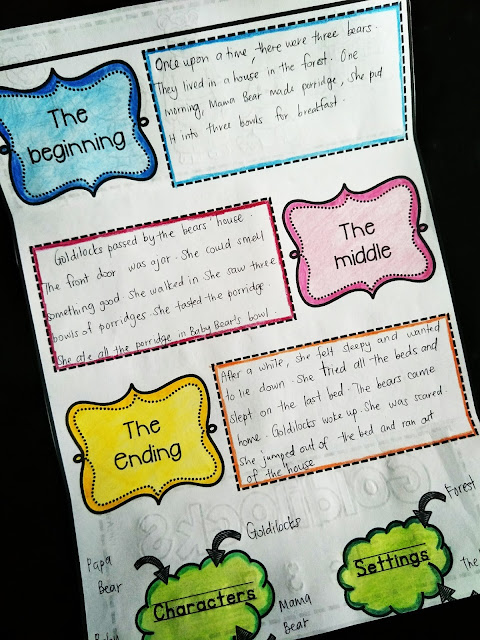 The beginning
Once upon a time, there were three bears.
They lived in a house in the forest. One
morning, Mama Bear made porridge, she put
it into three bowls for breakfast.
Goldilocks passed by the bears' house.
The front door was ajar. She could smell
something good. She walked in. She saw three
bowls of porridges. She tasted the porridge.
She ate all the porridge in Baby Bear's bowl.
The middle
After a while, she felt sleepy and wanted
to lie down. She tried all the beds and
slept on the last bed. The bears came
home. Goldilocks woke up. She was scared.
She jumped out of the bed and ran out
of the house
The Ending
Goldilocks
Papa
Bear
Characters
Mama
Bear
Baby
Forest
Settings
The